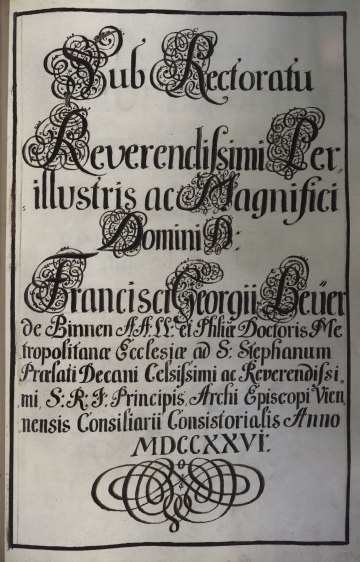 Sub Rectoratu
Reverendissimi Per
illustris ac Magnifici
Domini D:
Francisci Georgii Beüer
de Binnen AA. LL. et Phliæ Doctoris Me
tropolitanæ Ecclesiæ ad S: Stephanum
Prælati Decani Celsissimi ac Reverendissi-
mi, S: R: I: Principis, Archi Episcopi Vien-
nensis Consiliarii Consistorialis Anno
MDCCXXVI: